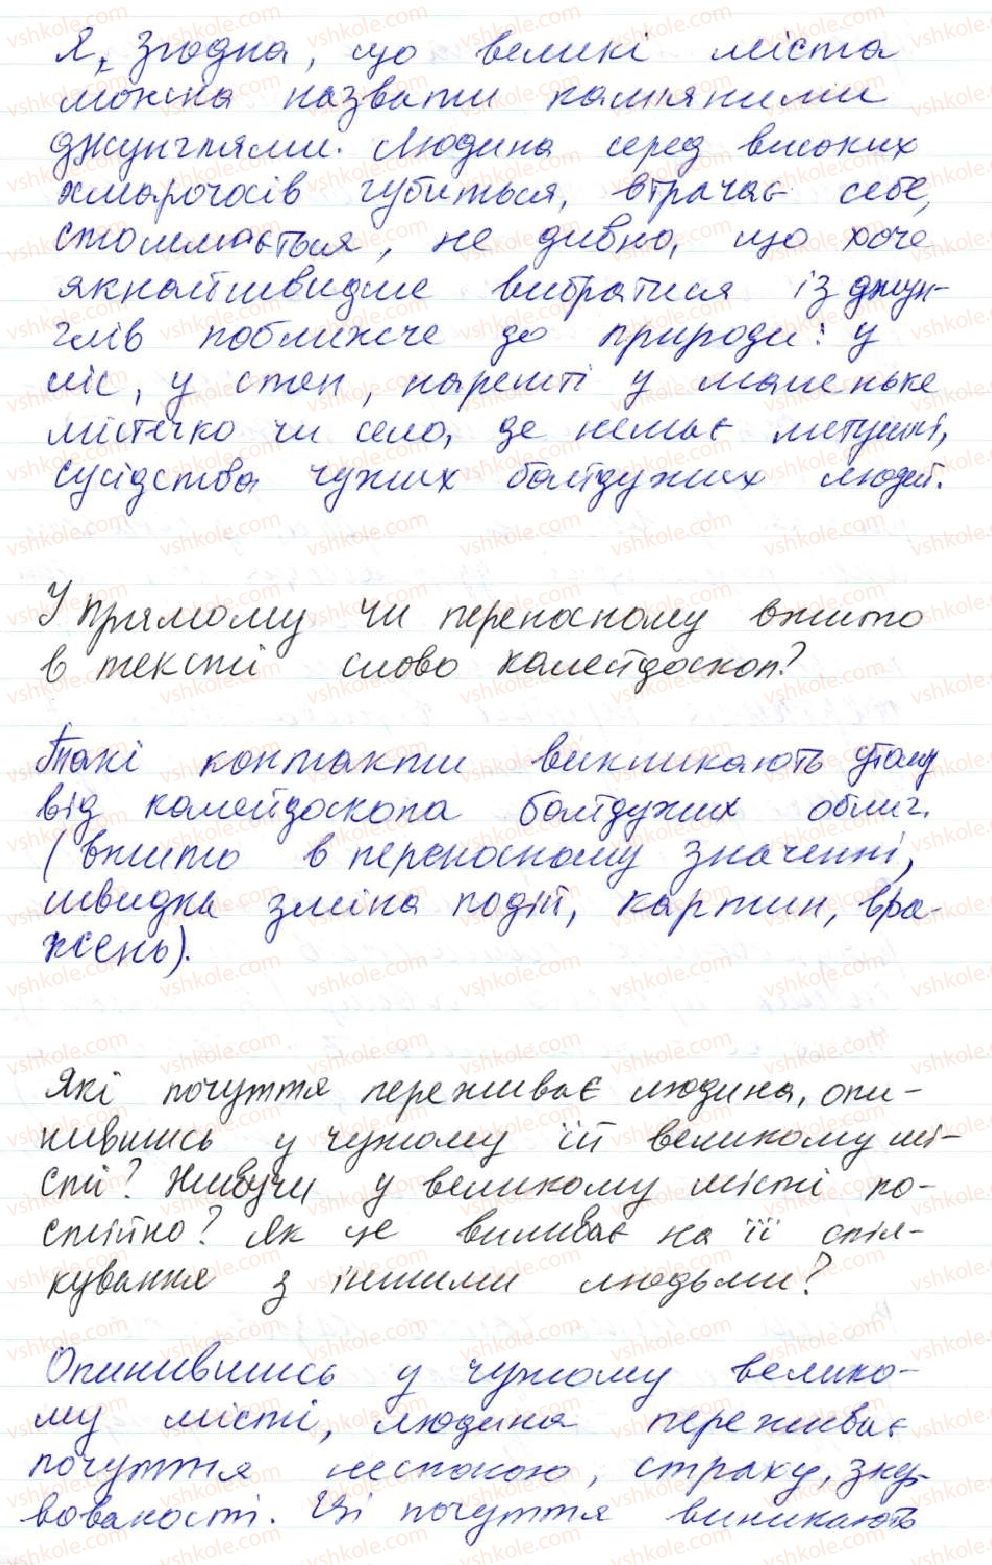 Я, згодна, що великі міста
можна назвати кам'яними
джунглями. Людина серед високих
хмарочосів губиться, втрачає себе,
стомлюється, не дивно, що хоче
якнайшвидше вибратися із джун-
глів поближче до природи: у
ліс, у степ, нарешті у маленьке
містечко чи село, де немає метушні,
сусідства чужих байдужих людей.
У прямому чи переносному вжито
в тексті слово калейдоскоп?
Такі контакти викликають утому
від калейдоскопа байдужих облич.
(вжито в переносному значенні,
швидка зміна подій, картин, вра-
жень).
Які почуття переживає людина, опи-
нившись у чужому їй великому мі-
сті? Живучи у великому місті по-
стійно? Як це впливає на її спіл-
кування з іншими людьми?
Опинившись у чужому велико-
му місті, людина переживає
почуття неспокою, страху, зну-
вованості. Ці почуття виникають